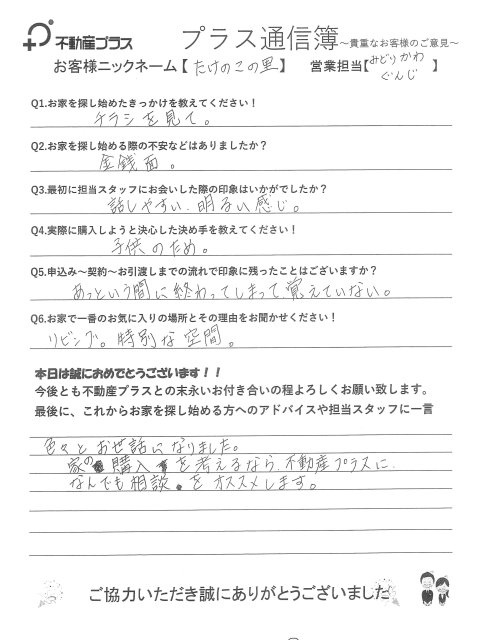 不動産プラス プラス通信簿 ～貴重なお客様のご意見～
お客様ニックネーム【 たけのこの里 】 営業担当【 みどりかわ ぐんじ 】
Q1.お家を探し始めたきっかけを教えてください！
チラシを見て。
Q2.お家を探し始める際の不安などはありましたか？
金銭面。
Q3.最初に担当スタッフにお会いした際の印象はいかがでしたか？
話しやすい、明るい感じ。
Q4.実際に購入しようと決心した決め手を教えてください！
子供のため。
Q5.申込み～契約～お引渡しまでの流れで印象に残ったことはございますか？
あっという間に終わってしまって覚えていない。
Q6.お家で一番のお気に入りの場所とその理由をお聞かせください！
リビング。特別な空間。
本日は誠におめでとうございます！！
今後とも不動産プラスとの末永いお付き合いの程よろしくお願い致します。
最後に、これからお家を探し始める方へのアドバイスや担当スタッフに一言
色々とお世話になりました。
家の購入を考えるなら、不動産プラスに、
なんでも相談をオススメします。
ご協力いただき誠にありがとうございました